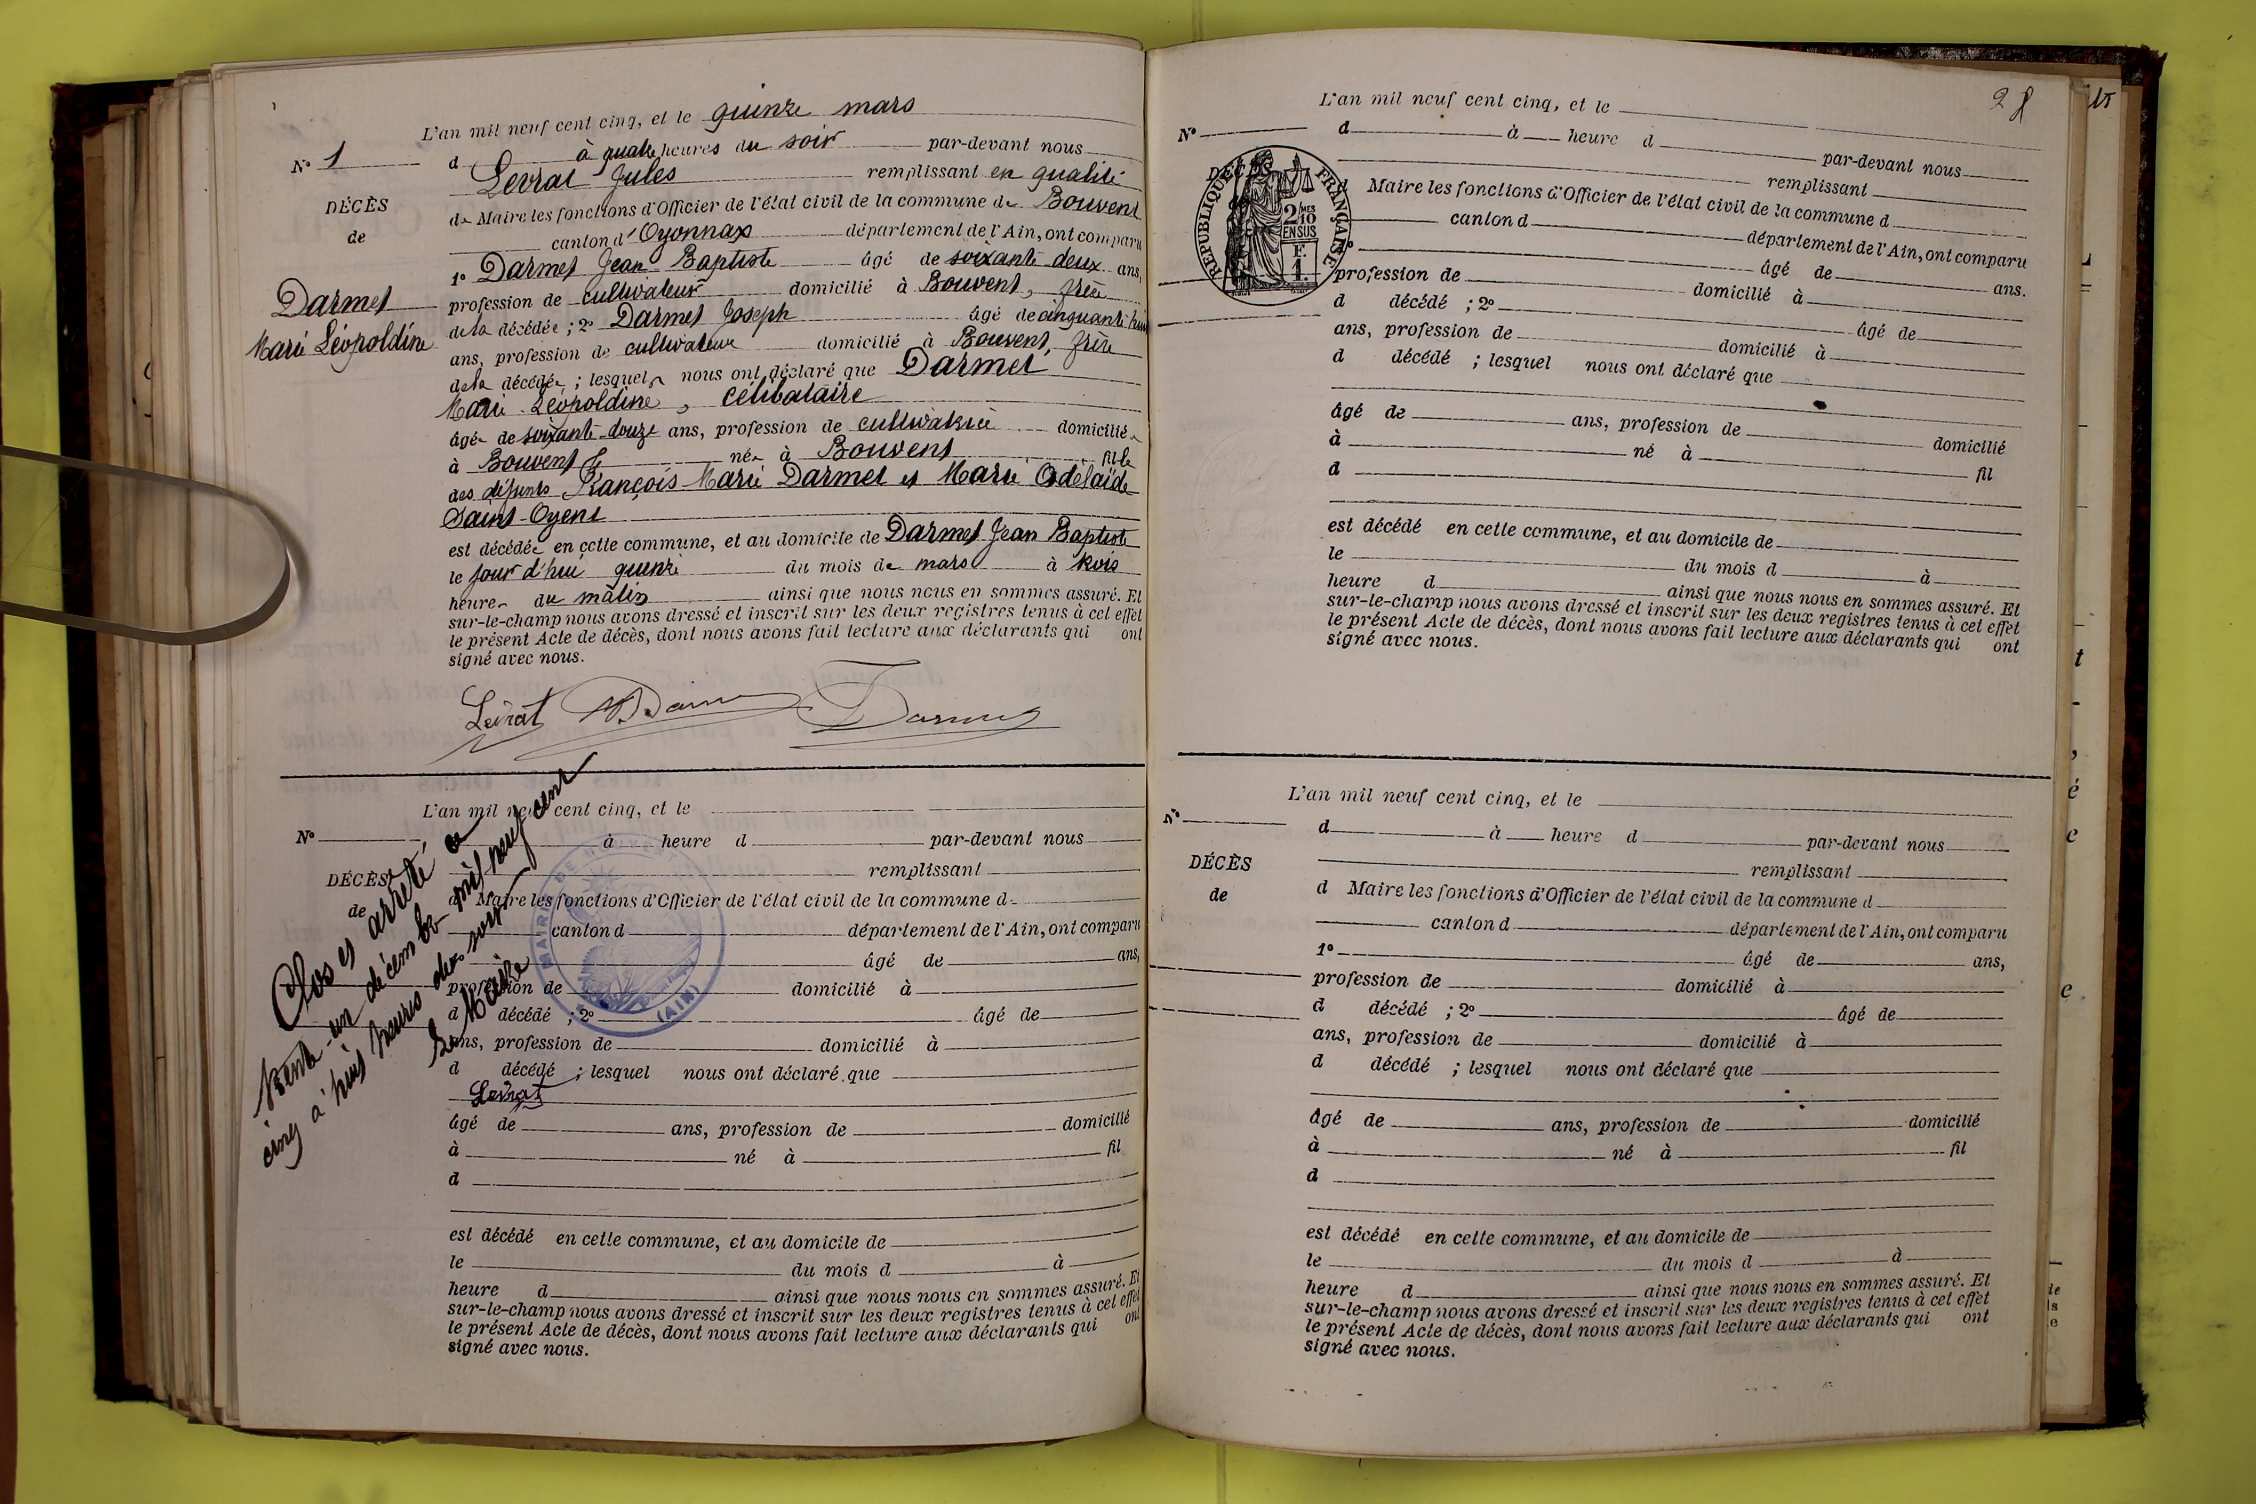 L'an mil neuf cent cinq, et le quinze mars
N° 1
d à quatre heures du soir par-devant nous
Levrat Jules remplissant en qualité
DÉCÈS
de
de Maire les fonctions d'Officier de l'état civil de la commune de Bouvent
canton d'Oyonnax département de l'Ain, ont comparu
1° Darmet Jean Baptiste âgé de soixante deux ans,
Darmet
Marie Léopoldine
profession de cultivateur domicilié à Bouvent, frère
de la décédée ; 2° Darmet Joseph âgé de cinquante huit
ans, profession de cultivateur domicilié à Bouvent, frère
de la décédée ; lesquels nous ont déclaré que Darmet
Marie Léopoldine, célibataire
âgée de soixante-douze ans, profession de cultivatrice domiciliée
à Bouvent née à Bouvent fille
des défunts François-Marie Darmet et Marie Adélaïde
Saint-Oyent
est décédée en cette commune, et au domicile de Darmet Jean Baptiste
le jour d'hui quinze du mois de mars à trois
heures du matin ainsi que nous nous en sommes assuré. Et
sur-le-champ nous avons dressé et inscrit sur les deux registres tenus à cet effet
le présent Acte de décès, dont nous avons fait lecture aux déclarants qui ont
signé avec nous.
Levrat JB Darmet Darmet
L'an mil neuf cent cinq, et le
N°
à heure d par-devant nous
remplissant
DÉCÈS
de
d Maire les fonctions d'Officier de l'état civil de la commune d
canton d département de l'Ain, ont comparu
âgé de ans,
profession de domicilié à
d décédé ; 2° âgé de
ans, profession de domicilié à
d décédé ; lesquel nous ont déclaré que
âgé de ans, profession de domicilié
à né à fil
d
est décédé en cette commune, et au domicile de
le du mois d à
heure d ainsi que nous nous en sommes assuré. Et
sur-le-champ nous avons dressé et inscrit sur les deux registres tenus à cet effet
le présent Acte de décès, dont nous avons fait lecture aux déclarants qui ont
signé avec nous.
Clos et arrêté ce
trente-un décembre mil neuf cent
cinq à huit heures du soir
Le Maire
Levrat
MAIRIE DE BOUVENT
(AIN)
28
L'an mil neuf cent cinq, et le
N°
d à heure d par-devant nous
remplissant
DÉCÈS
RÉPUBLIQUE FRANÇAISE
2/10 MES
EN SUS
F.
1.
d Maire les fonctions d'Officier de l'état civil de la commune d
canton d département de l'Ain, ont comparu
âgé de ans.
profession de domicilié à
d décédé ; 2° âgé de
ans, profession de domicilié à
d décédé ; lesquel nous ont déclaré que
âgé de ans, profession de domicilié
à né à
d fil
est décédé en cette commune, et au domicile de
le du mois d à
heure d ainsi que nous nous en sommes assuré. Et
sur-le-champ nous avons dressé et inscrit sur les deux registres tenus à cet effet
le présent Acte de décès, dont nous avons fait lecture aux déclarants qui ont
signé avec nous.
L'an mil neuf cent cinq, et le
N°
d à heure d par-devant nous
remplissant
DÉCÈS
de
d Maire les fonctions d'Officier de l'état civil de la commune d
canton d département de l'Ain, ont comparu
1° âgé de ans,
profession de domicilié à
d décédé ; 2° âgé de
ans, profession de domicilié à
d décédé ; lesquel nous ont déclaré que
âgé de ans, profession de domicilié
à né à fil
d
est décédé en cette commune, et au domicile de
le du mois d à
heure d ainsi que nous nous en sommes assuré. Et
sur-le-champ nous avons dressé et inscrit sur les deux registres tenus à cet effet
le présent Acte de décès, dont nous avons fait lecture aux déclarants qui ont
signé avec nous.